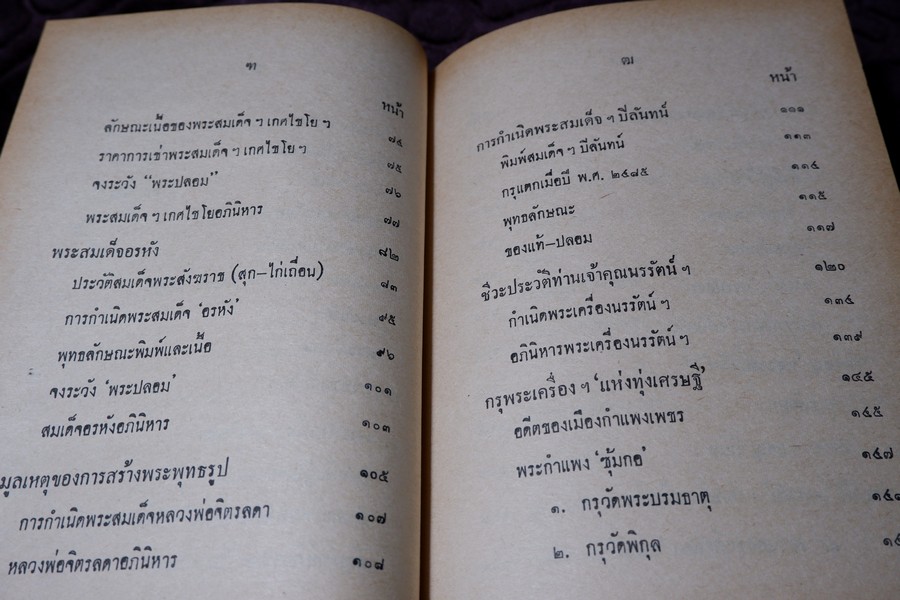 ฑ
หน้า
ลักษณะเนื้อของพระสมเด็จ ฯ เกศไชโย ฯ ๗๔
ราคาการเช่าพระสมเด็จ ฯ เกศไชโย ฯ ๗๕
จงระวัง “พระปลอม” ๗๖
พระสมเด็จ ฯ เกศไชโยอภินิหาร ๗๗
พระสมเด็จอรหัง ๘๒
ประวัติสมเด็จพระสังฆราช (สุก–ไก่เถื่อน) ๘๓
การกำเนิดพระสมเด็จ ‘อรหัง’ ๙๕
พุทธลักษณะพิมพ์และเนื้อ ๙๖
จงระวัง ‘พระปลอม’ ๑๐๑
สมเด็จอรหังอภินิหาร ๑๐๓
มูลเหตุของการสร้างพระพุทธรูป ๑๐๕
การกำเนิดพระสมเด็จหลวงพ่อจิตรลดา ๑๐๗
หลวงพ่อจิตรลดาอภินิหาร ๑๐๘
ฒ
หน้า
การกำเนิดพระสมเด็จ ฯ ปิลันทน์ ๑๑๑
พิมพ์สมเด็จ ฯ ปิลันทน์ ๑๑๓
กรุแตกเมื่อปี พ.ศ. ๒๔๘๕ ๑๑๔
พุทธลักษณะ ๑๑๕
ของแท้–ปลอม ๑๑๗
ชีวะประวัติท่านเจ้าคุณนรรัตน์ ฯ ๑๒๐
กำเนิดพระเครื่องนรรัตน์ ฯ ๑๓๔
อภินิหารพระเครื่องนรรัตน์ ฯ ๑๓๙
กรุพระเครื่อง ฯ ‘แห่งทุ่งเศรษฐี’ ๑๔๕
อดีตของเมืองกำแพงเพชร ๑๔๕
พระกำแพง ‘ซุ้มกอ’ ๑๔๗
๑. กรุวัดพระบรมธาตุ
๒. กรุวัดพิกุล